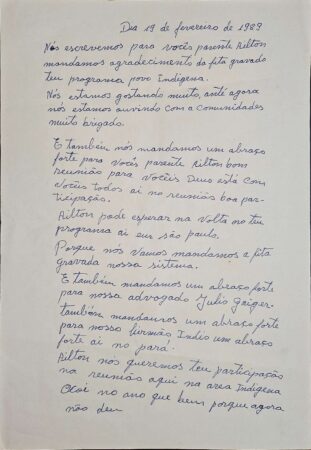 Dia 19 de fevereiro de 1989
Nós escrevemos para vocês parente Ailton
mandamos agradecimento da fita gravado
teu programa povo Indígena.
Nós estamos gostando muito, anté agora
nós estamos ouvindo com a comunidades
muito brigado.
E também nós mandamos um abraço
forte para vocês parente Ailton bom
reunião para vocêis Deus está com
vocêis todos ai no reunião boa par-
ticipação.
Ailton pode esperar na volta no teu
programa ai em são paulo.
Porque nós vamos mandamos a fita
gravada nossa sistema.
E também mandamos um abraço forte
para nossa advogado Julio Gaiger.
também mandamos um abraço forte
para nosso hermão Indio um abraço
forte ai no pará.
Ailton nós queremos teu participação
na reunião aqui na area Indígena
no ano que bem porque agora
não deu